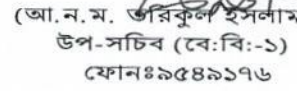 (আ.ন.ম. তরিকুল ইসলাম
উপ-সচিব (বে:বি:-১)
ফোনঃ৯৫৪৯১৭৬